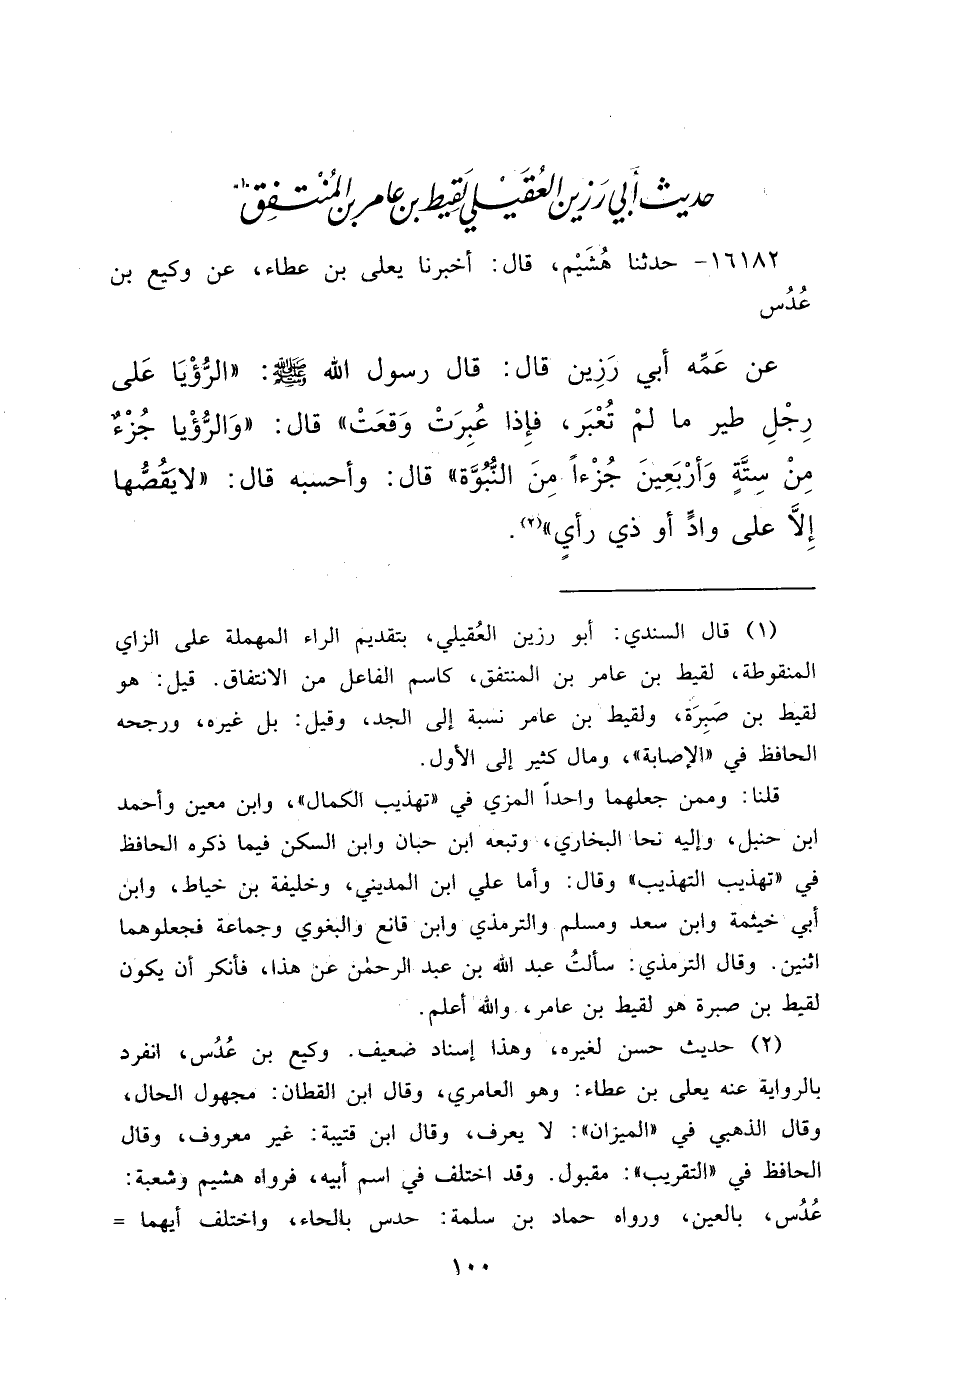 حديث أبي رَزين العُقَيلي لَقِيط بن عامر بن المُنْتفِق(١)
١٦١٨٢- حدثنا هُشَيْم، قال: أخبرنا يعلى بن عطاء، عن وكيع بن
عُدُس
عن عَمِّه أبي رَزِين قال: قال رسول الله ﷺ: «الرُّؤْيَا عَلى
رِجْلِ طير ما لمْ تُعْبَر، فإذا عُبِرَتْ وَقعَتْ» قال: «وَالرُّؤْيا جُزْءٌ
مِنْ سِتَّةٍ وَأرْبَعِينَ جُزْءاً مِنَ النُّبُوَّة» قال: وأحسبه قال: «لايَقُصُّها
إِلاَّ على وادٍّ أو ذي رأيٍ»(٢).
(١) قال السندي: أبو رزين العُقيلي، بتقديم الراء المهملة على الزاي
المنقوطة، لقيط بن عامر بن المنتفق، كاسم الفاعل من الانتفاق. قيل: هو
لقيط بن صَبِرَة، ولقيط بن عامر نسبة إلى الجد، وقيل: بل غيره، ورجحه
الحافظ في «الإصابة»، ومال كثير إلى الأول.
قلنا: وممن جعلهما واحداً المزي في «تهذيب الكمال»، وابن معين وأحمد
ابن حنبل، وإليه نحا البخاري، وتبعه ابن حبان وابن السكن فيما ذكره الحافظ
في «تهذيب التهذيب» وقال: وأما علي ابن المديني، وخليفة بن خياط، وابن
أبي خيثمة وابن سعد ومسلم والترمذي وابن قانع والبغوي وجماعة فجعلوهما
اثنين. وقال الترمذي: سألتُ عبد الله بن عبد الرحمٰن عن هذا، فأنكر أن يكون
لقيط بن صبرة هو لقيط بن عامر، والله أعلم.
(٢) حديث حسن لغيره، وهذا إسناد ضعيف. وكيع بن عُدُس، انفرد
بالرواية عنه يعلى بن عطاء: وهو العامري، وقال ابن القطان: مجهول الحال،
وقال الذهبي في «الميزان»: لا يعرف، وقال ابن قتيبة: غير معروف، وقال
الحافظ في «التقريب»: مقبول. وقد اختلف في اسم أبيه، فرواه هشيم وشعبة:
عُدُس، بالعين، ورواه حماد بن سلمة: حدس بالحاء، واختلف أيهما =
١٠٠